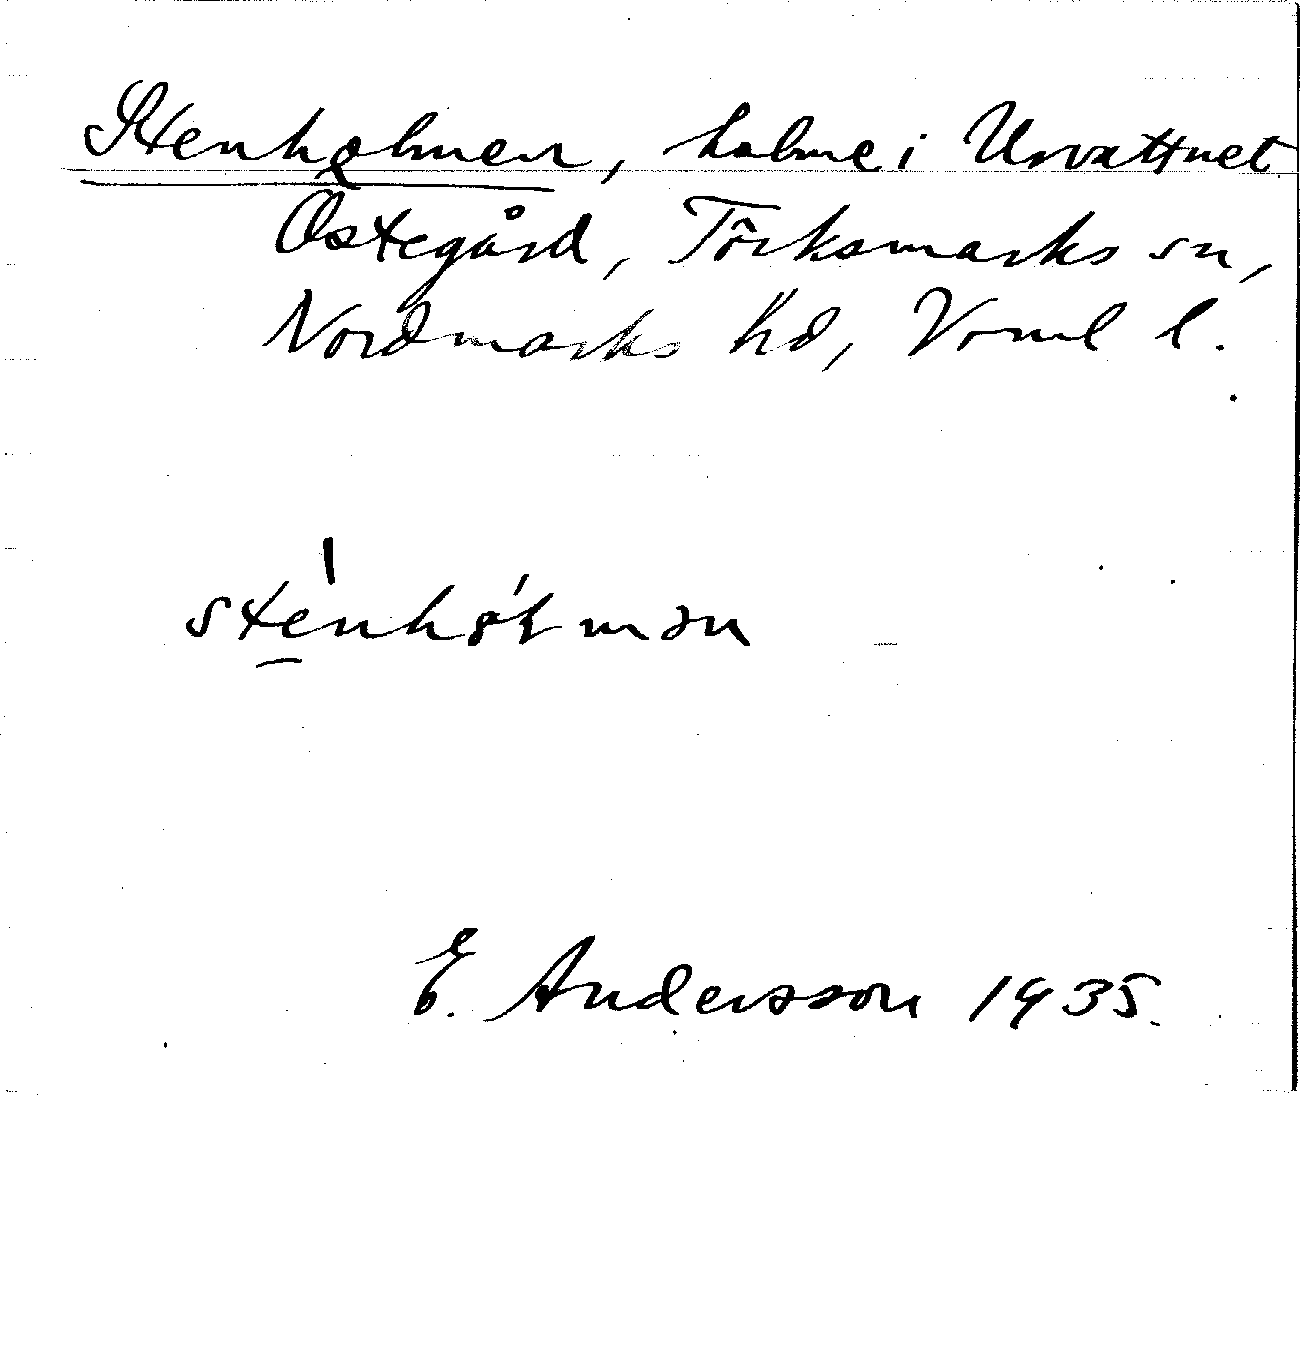 Stenholmen, holme i Urvattnet
Östegård, Törksmarks sn,
Nordmarks hd, Vrml l.
stenhólmən
E. Andersson 1935.